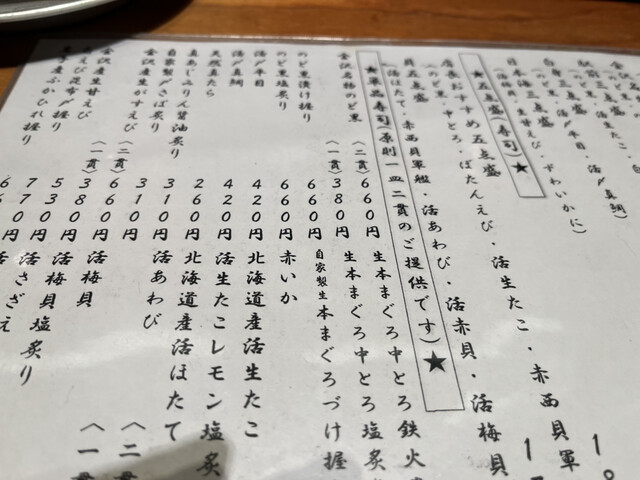 日本海三点盛
(活梅貝・生甘えび・ずわいかに)
★五点盛(寿司)★
店長おすすめ五点盛
(のど黒・中とろ・ぼたんえび・活生たこ・赤西貝軍
貝五点盛
(活ほたて・赤西貝軍艦・活あわび・活赤貝・活梅貝
★単品寿司(原則一皿二貫のご提供です)★
金沢名物のど黒
(二貫)660円
(一貫)380円
のど黒漬け握り 660円
のど黒塩炙り 660円
活〆平目 420円
活〆真鯛 420円
天然真たら 260円
真あじみりん醤油炙り 310円
自家製〆さば炙り 310円
金沢産生がすえび (二貫)660円
(一貫)380円
金沢産生甘えび 530円
えび昆布〆握り 770円
産ふかひれ握り
生本まぐろ中とろ鉄火
生本まぐろ中とろ塩炙
自家製生本まぐろづけ握
赤いか
北海道産活生たこ
活生たこレモン塩炙
北海道産活ほたて
活あわび (二貫
(一貫
活梅貝
活梅貝塩炙り
活さざえ